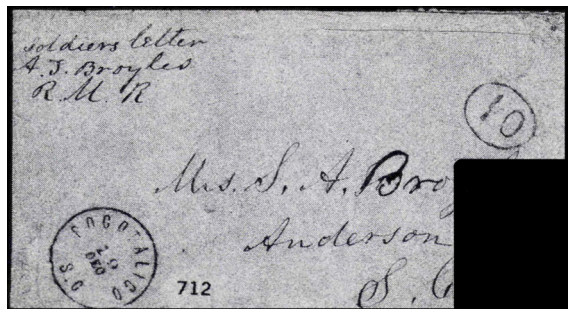 soldiers letter
A. T. Broyles
R. M. R
10
Mrs. S. A. Bro
Anderson
S. C
POCOTALIGO
DEC
S.C.
712